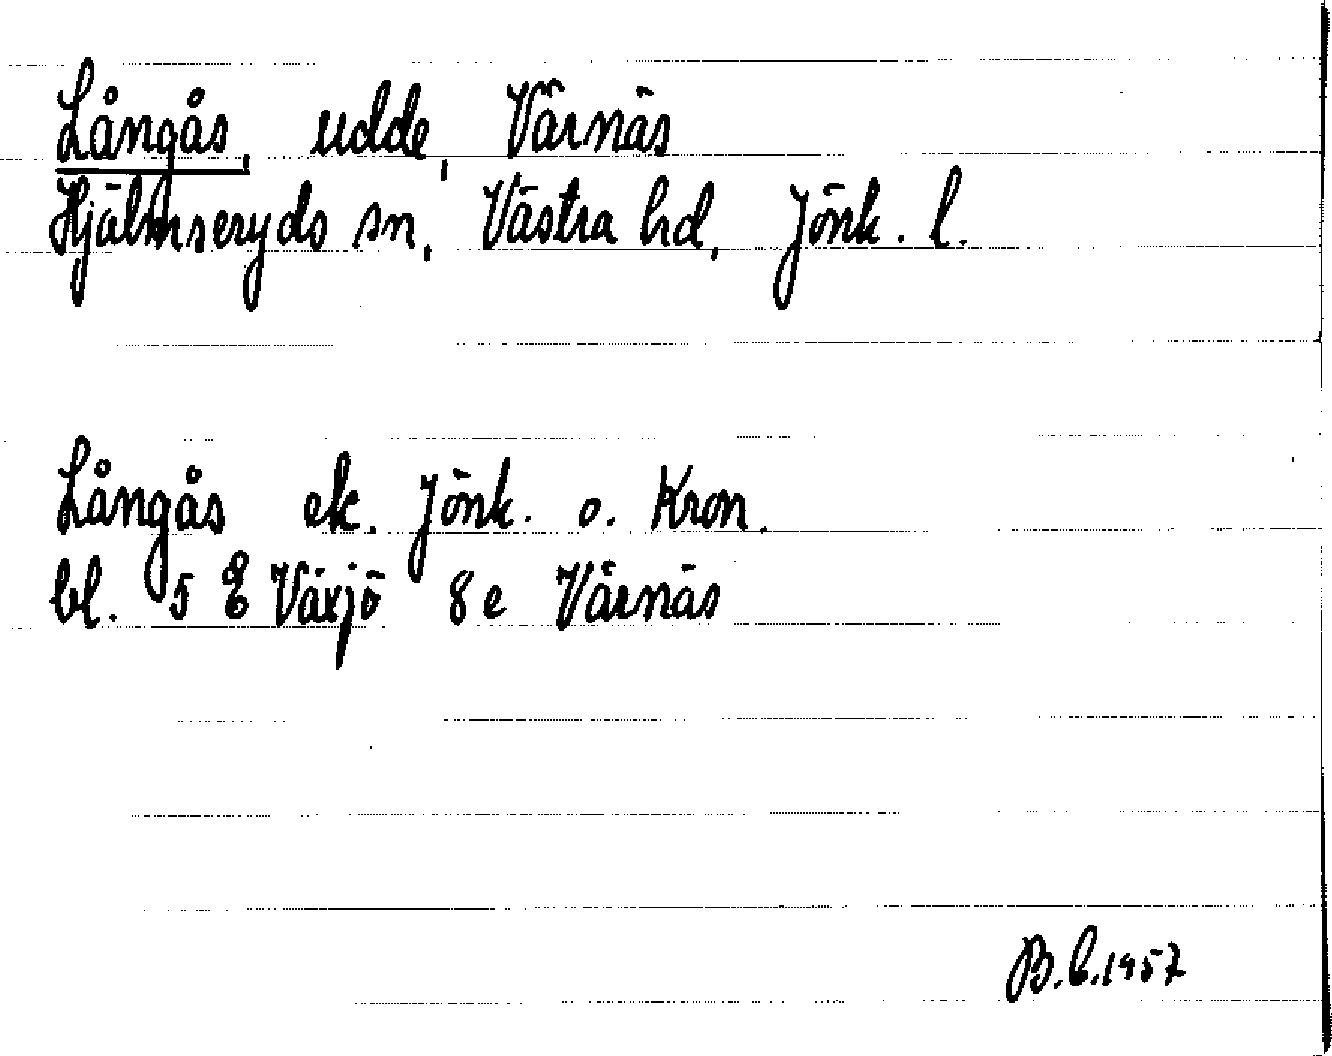 Långås, udde, Värnäs
Hjälmseryds sn, Västra hd, Jönk. l.
Långås ek. Jönk. o. Kron.
bl. 5 E Växjö 8e Värnäs
B.E.1957